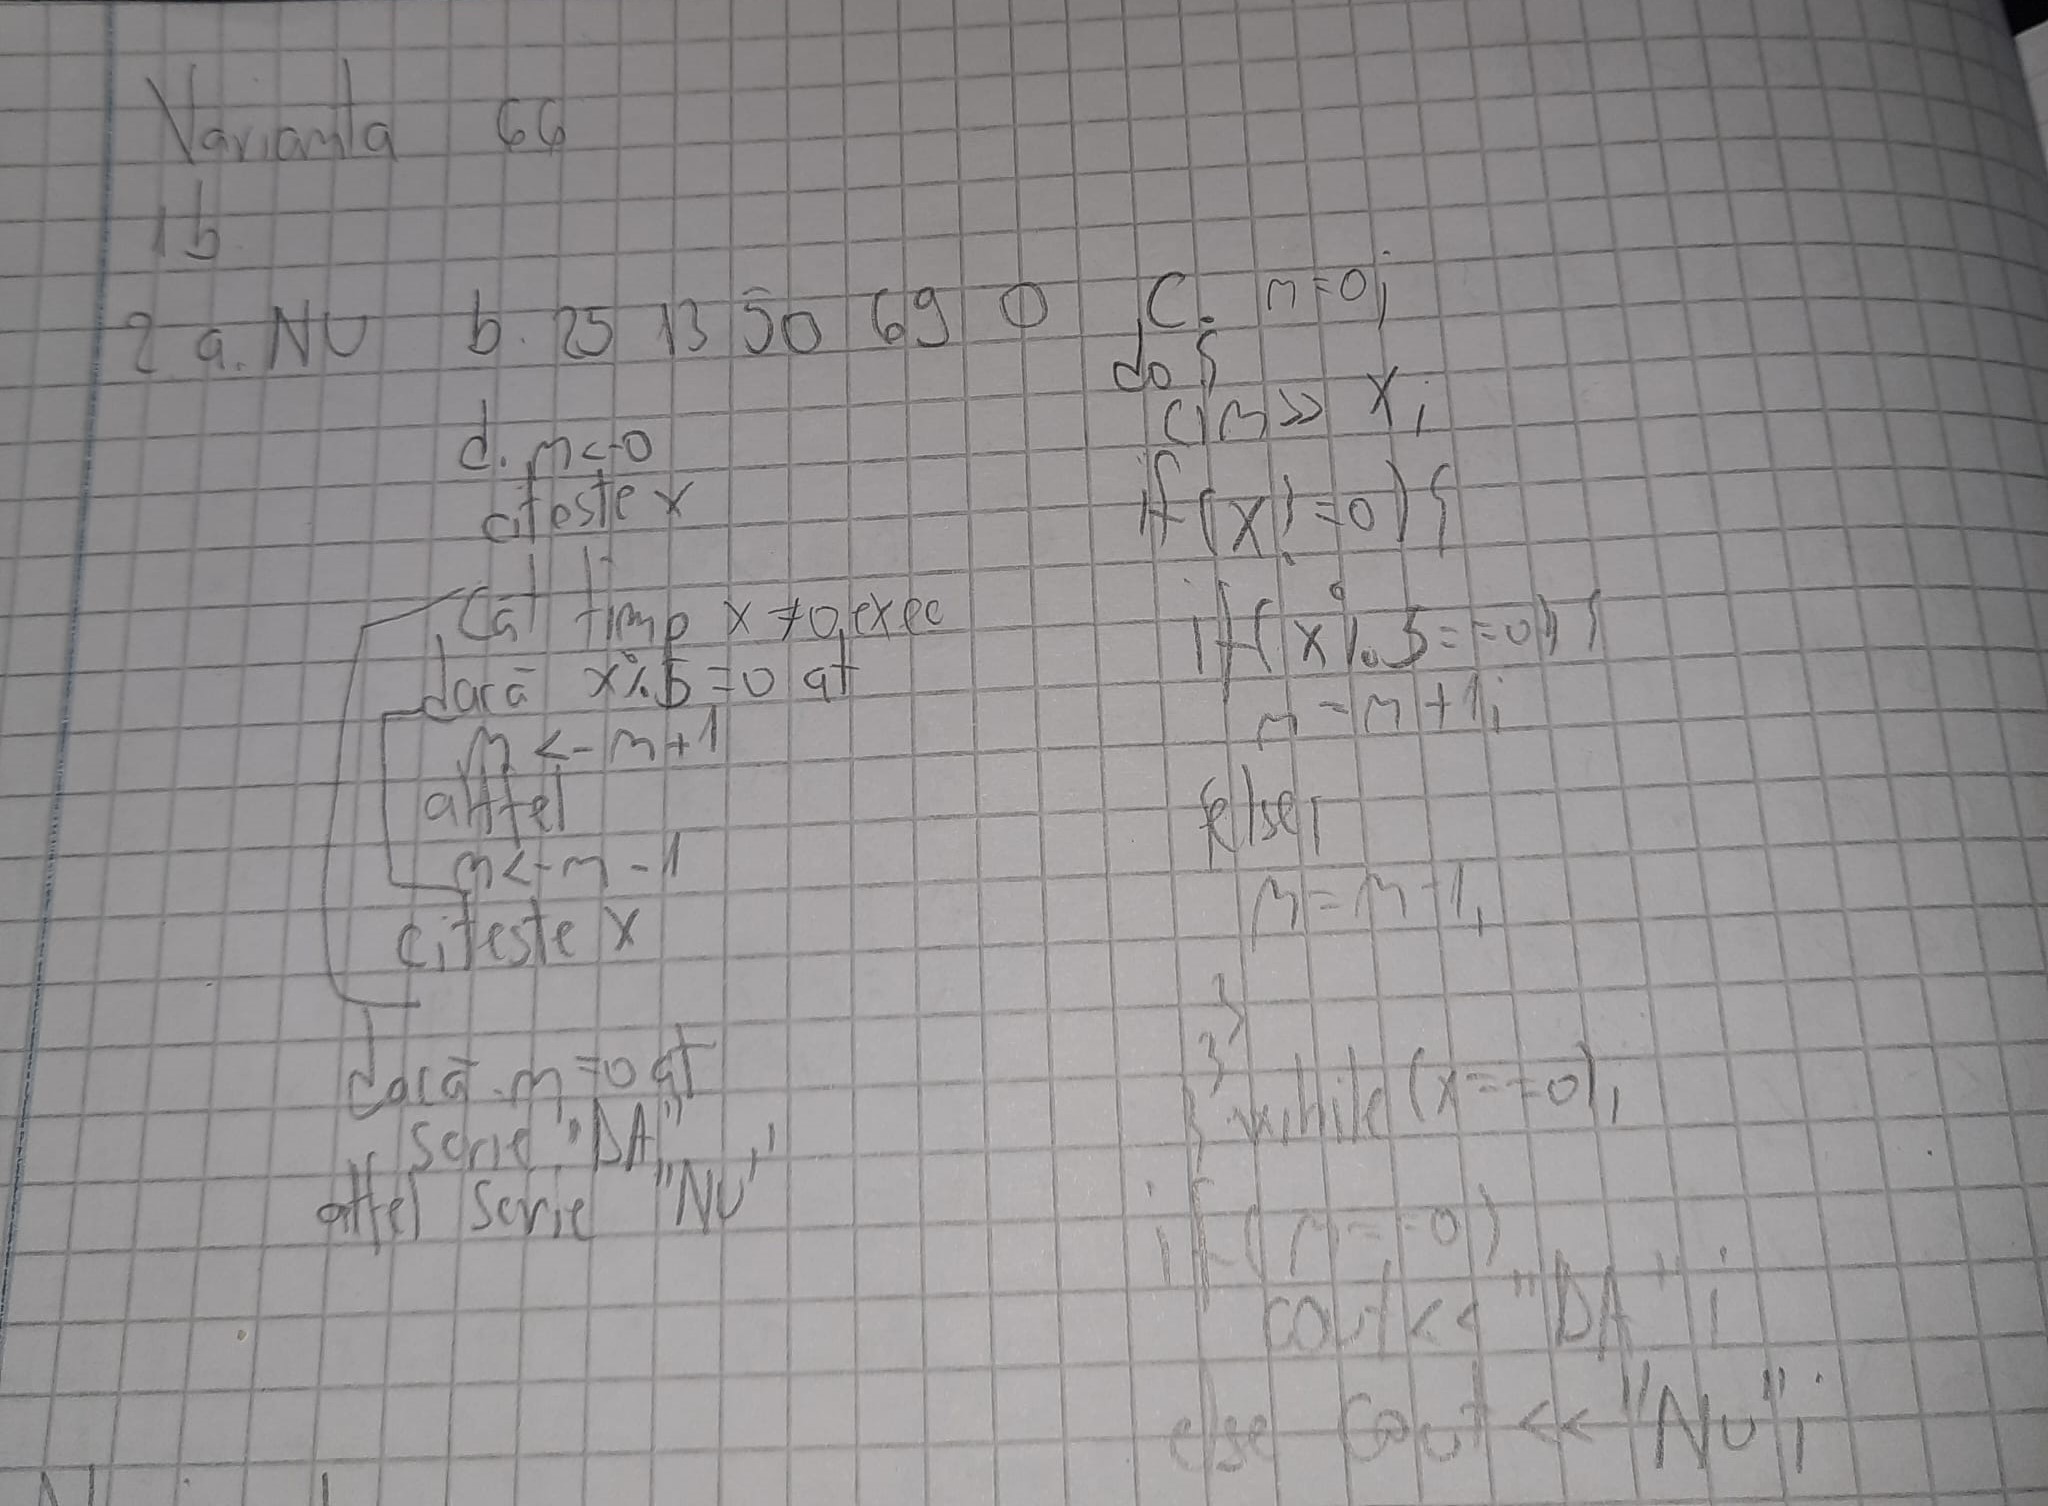 Varianta 66
1b
2 a. NU b. 25 13 50 69 0
d. n<-0
citeste x
Cât timp x≠0 exec
dacă x%5=0 at
n<-n+1
altfel
n<-n-1
citeste x
dacă n=0 at
scrie "DA"
altfel scrie "NU"
C. n=0;
do{
cin>>x;
if(x!=0){
if(x%5==0){
n=n+1;
else
n=n-1;
}
}
} while(x==0);
if(n==0)
cout<<"DA";
else cout<<"NU";